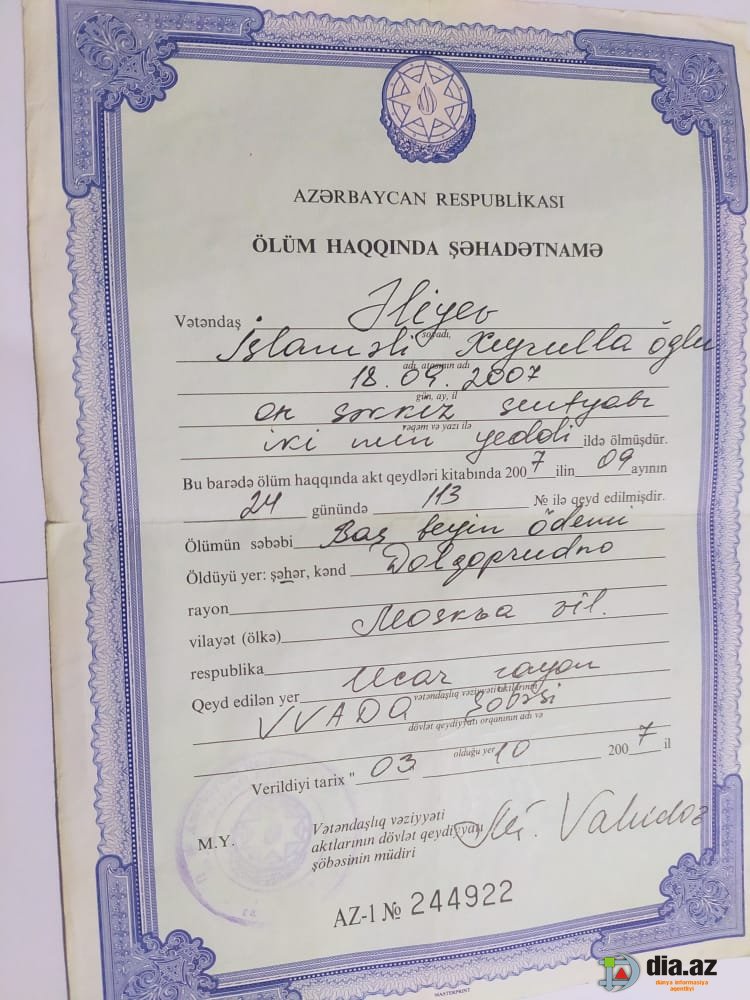 AZƏRBAYCAN RESPUBLİKASI
ÖLÜM HAQQINDA ŞƏHADƏTNAMƏ
Vətəndaş Əliyev
soyadı,
İslaməli Xeyrulla oğlu
adı, atasının adı
18.09.2007
gün, ay, il
on səkkiz sentyabr
rəqəm və yazı ilə
iki min yeddi ildə ölmüşdür.
Bu barədə ölüm haqqında akt qeydləri kitabında 2007 ilin 09 ayının
24 günündə 113 № ilə qeyd edilmişdir.
Ölümün səbəbi Baş beyin ödemi
Öldüyü yer: şəhər, kənd Dolqoprudno
rayon
vilayət (ölkə) Москва vil.
respublika
Qeyd edilən yer Ucar rayon
vətəndaşlıq vəziyyəti aktlarının
VVADQ şöbəsi
dövlət qeydiyyatı orqanının adı və
olduğu yer
Verildiyi tarix " 03 10 2007 il
M.Y.
Vətəndaşlıq vəziyyəti
aktlarının dövlət qeydiyyatı
şöbəsinin müdiri
AZ-1 № 244922
MASTERPRINT
dia.az
dünya informasiya
agentliyi